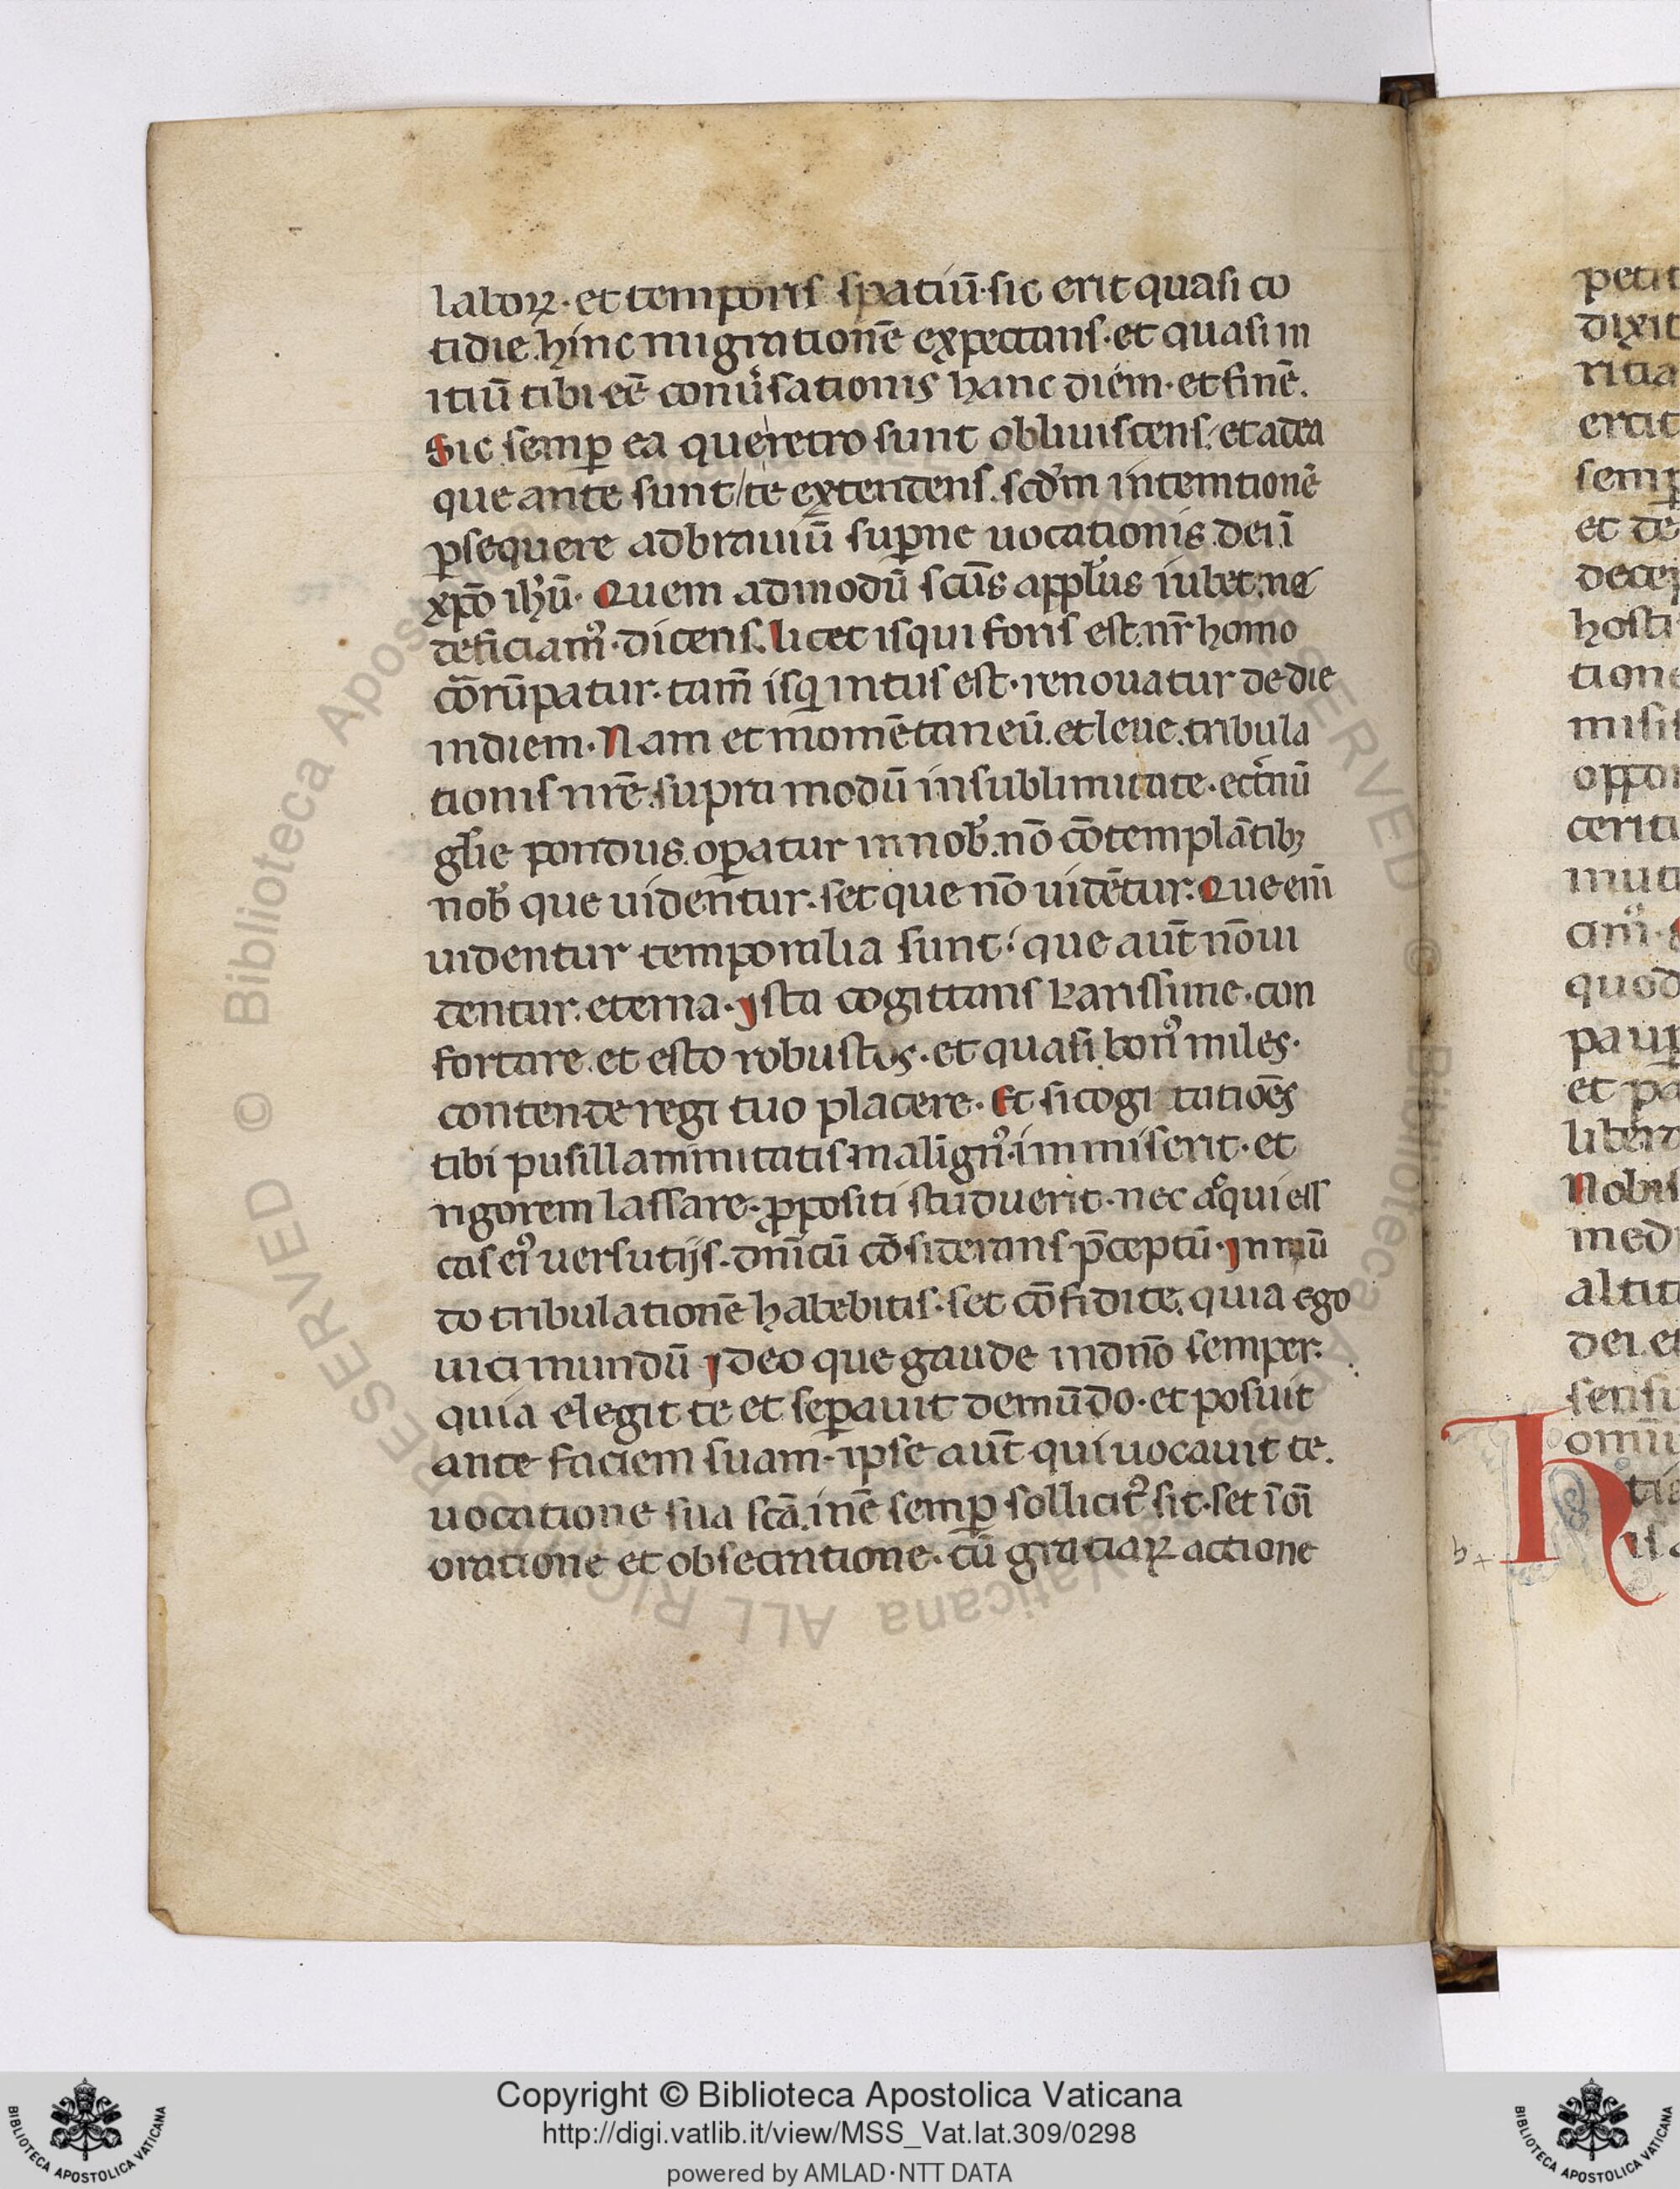 laboꝝ· et temporis spatiū· sic erit quasi co
tidie hinc migrationē expectans· et quasi in
itiū tibi eē conuʼsationis hanc diem· et finē.
Sic semꝑ ea que retro sunt obliuiscens· et ad ea
que ante sunt te extendens. scdʼm intemtionē
ꝑsequere ad brauiū suꝑne uocationis dei ī
xp̄o ih̄ū· Quem admodū scūs applʼus iubet ne
deficiamꝰ· dicens. licet is qui foris est. nr̄ homo
cōrūpatur· tam̄ is qi intus est· renouatur de die
in diem· Nam et momētaneū. et leue. tribula
tionis nrē. supra modū in sublimitate· etʼnū
glʼie pondus. oꝑatur in nobʼ. nō cōtemplātibꝫ
nobʼ que uidentur· set que nō uidētur· Que enī
uidentur temporalia sunt· que aut̄ nō ui
dentur. eterna· ista cogittans karissime· con
fortare. et esto robustus· et quasi bonꝰ miles·
contende regi tuo placere· Et si cogi tationēs
tibi pusillanimitatis malignꝰ immiserit· et
rigorem lassare· ꝓpositi studuerit· nec acqui ess
cas eiꝰ uersutijs· dn̄icū cōsiderans p̄ceptū· in mū
do tribulationē habebitis· set cōfidite, quia ego
uici mundū ideo que gaude in dn̄o semper·
quia elegit te et seꝑauit de mūdo· et posuit
ante faciem suam· ipse aut̄ qui uocauit te.
uocatione sua scā. in eʼ semꝑ sollicitꝰ sit· set ī oī
oratione et obsecratione· cū gratiaꝝ actione
petit
dixit
ritia
ertit
semꝑ
et de
decep
hosti
tione
misis
oppor
cerita
muta
amꝰ·
quod
pauꝑ
et pa
libera
Nobis
med
altit
dei et
sensu
omniū
h
tia
us a
Copyright © Biblioteca Apostolica Vaticana
http://digi.vatlib.it/view/MSS_Vat.lat.309/0298
powered by AMLAD·NTT DATA
BIBLIOTECA APOSTOLICA VATICANA
BIBLIOTECA APOSTOLICA VATICANA